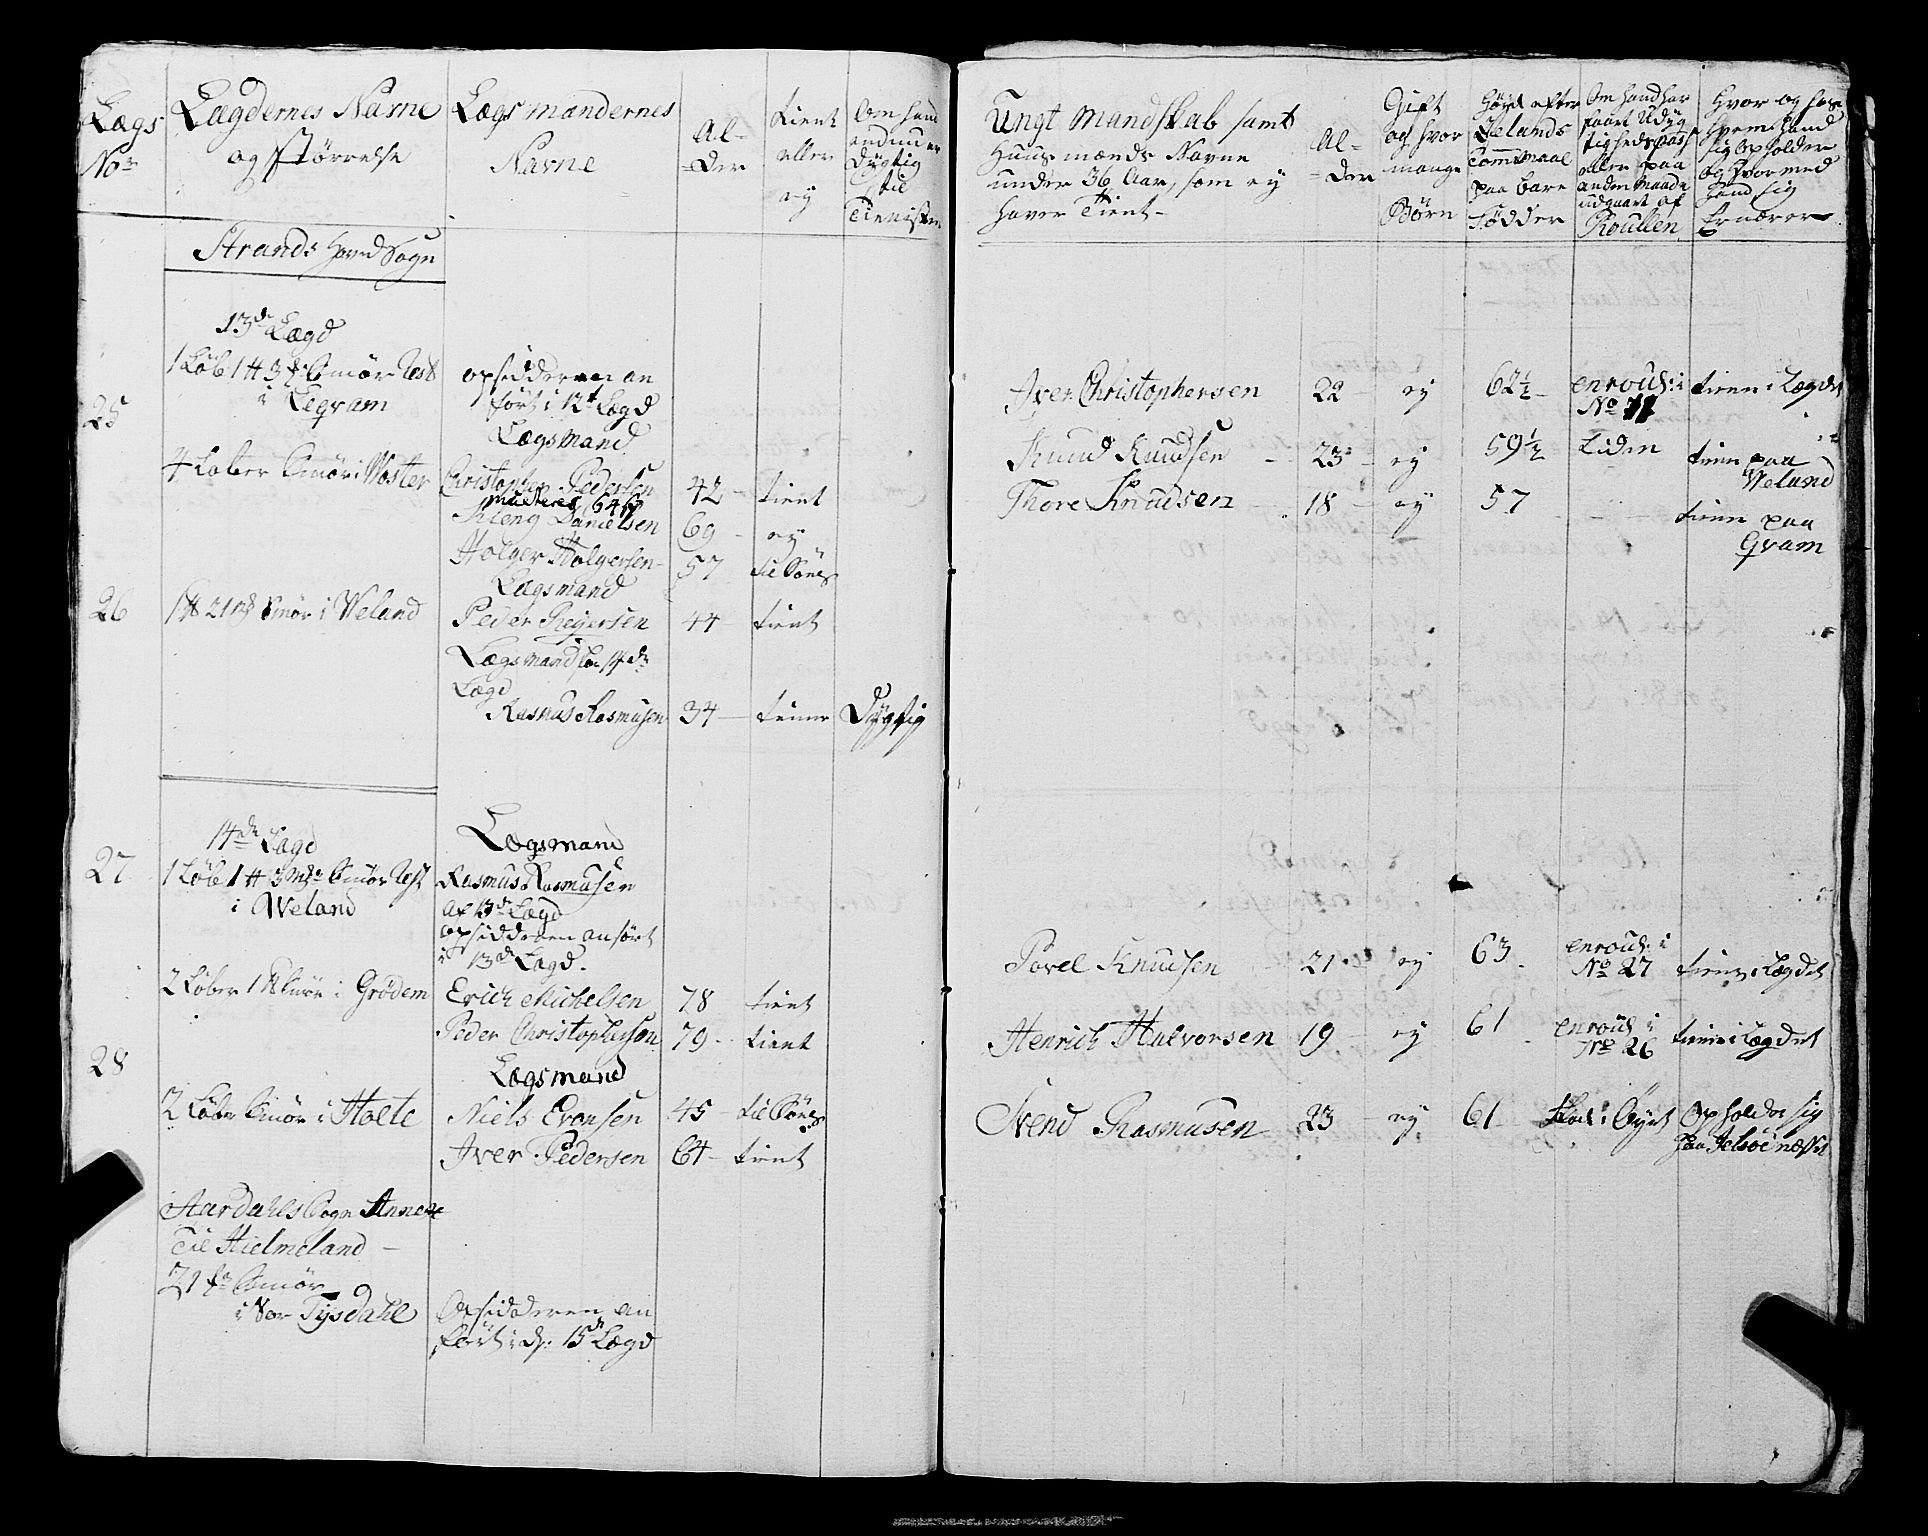 Lægs
No
Lægdernes Navne
og Störrelse
Lægs mændernes
Navne
Al-
-der
tient
eller
ey
Om hand
endnu er
Dygtig
til
Tienisten
Strands Hoved Sogn
13de Lægd
i Leqvam
opsidderne an
fört i 12t Lægd
25
Lægsmand
4 Løber Smör i Woster
Christopher Pedersen 42 - tient
Danielsen 69 - ey
Holger Holgersen 57 til Söes
Lægsmand
26
Smör i Weland
Peder Reyersen 44 - tient
Lægsmand for 14de
Lægd
Rasmus Rasmusen 34 - tiener Dygtig
14de Lægd
Lægsmand
27
i Weland
Rasmus Rasmusen
af 13de Lægd
opsidderen anfört
i 13de Lægd.
i Grödem
Erich Michelsen 78 tient
Peder Christophersen 79 - tient
28
Lægsmand
2 Løber Smör i Holte
Niels Evensen 45 - til Söes
Iver Pedersen 64 - tient
Aardahls Sogn Annex
Til Hielmeland -
Smör
Tysdahl
Opsidderen an
fört i 15de Lægd
Ungt Mandskab samt
Huusmænds Navne
under 36 Aar, som ey
haver Tient-
Al-
-der
Gift
og hvor
mange
Börn
Höyde efter
Selands
Tommemaal
paa bare
Födder
Om hand har
faaet Udyg-
tighedspass
eller paa
anden Maade
udgaaet af
Roullen
Hvor og hos
hvem hand
sig opholder
og hvormed
hand sig
Ernærer
Iver Christophersen 22 - ey 62½ - enroul: i tiener i Lægdet
No
Knud Knudsen - 23 - ey 59½ Liden tiener paa
Weland
Thore Knudsen - 18 - ey 57 - tiener paa
Qvam
Povel Knudsen 21 - ey 63 enroul: i
No 27 tiener i Lægdet
Henrich Halvorsen 19 - ey 61 enroul: i
No 26 tiener i Lægdet
Svend Rasmusen 23 - ey 61 Opholder sig
paa Jelsöe næsset